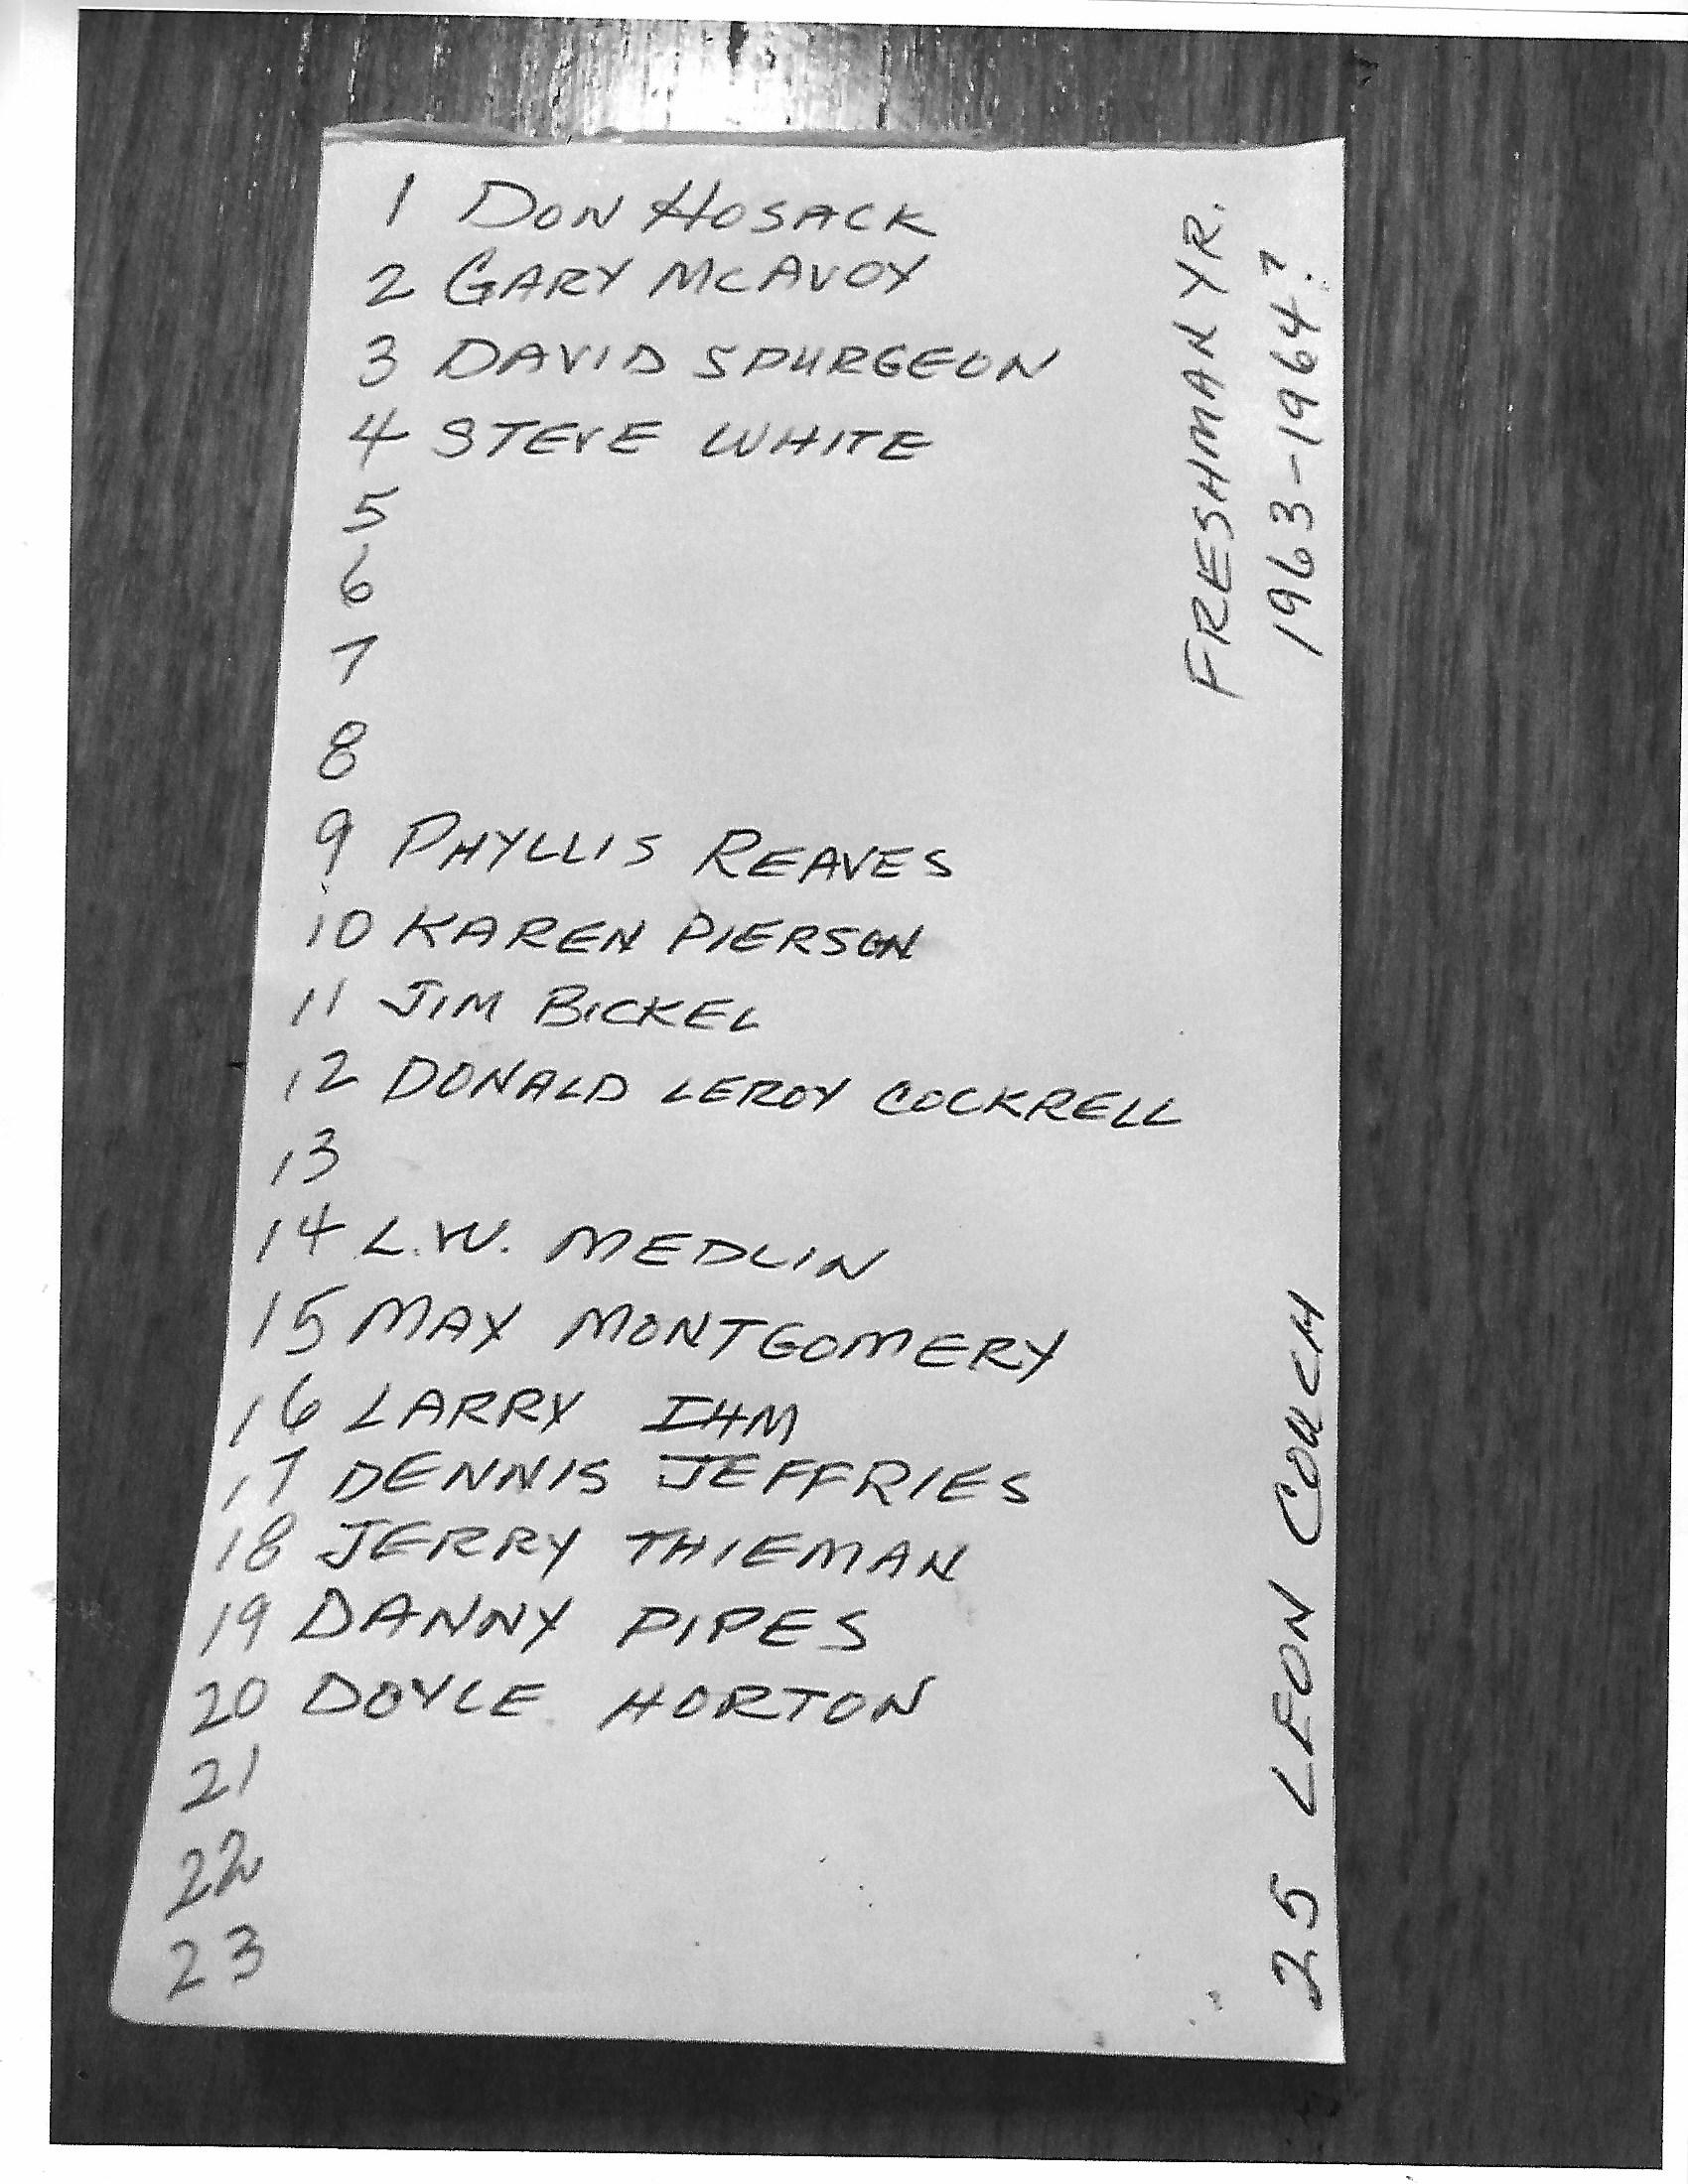 1 DON HOSACK
2 GARY MCAVOY
3 DAVID SPURGEON
4 STEVE WHITE
5
6
7
8
9 PHYLLIS REAVES
10 KAREN PIERSON
11 JIM BICKEL
12 DONALD LEROY COCKRELL
13
14 L.W. MEDLIN
15 MAX MONTGOMERY
16 LARRY IHM
17 DENNIS JEFFRIES
18 JERRY THIEMAN
19 DANNY PIPES
20 DOYLE HORTON
21
22
23
FRESHMAN YR.
1963-1964?
25 LEON COUCH